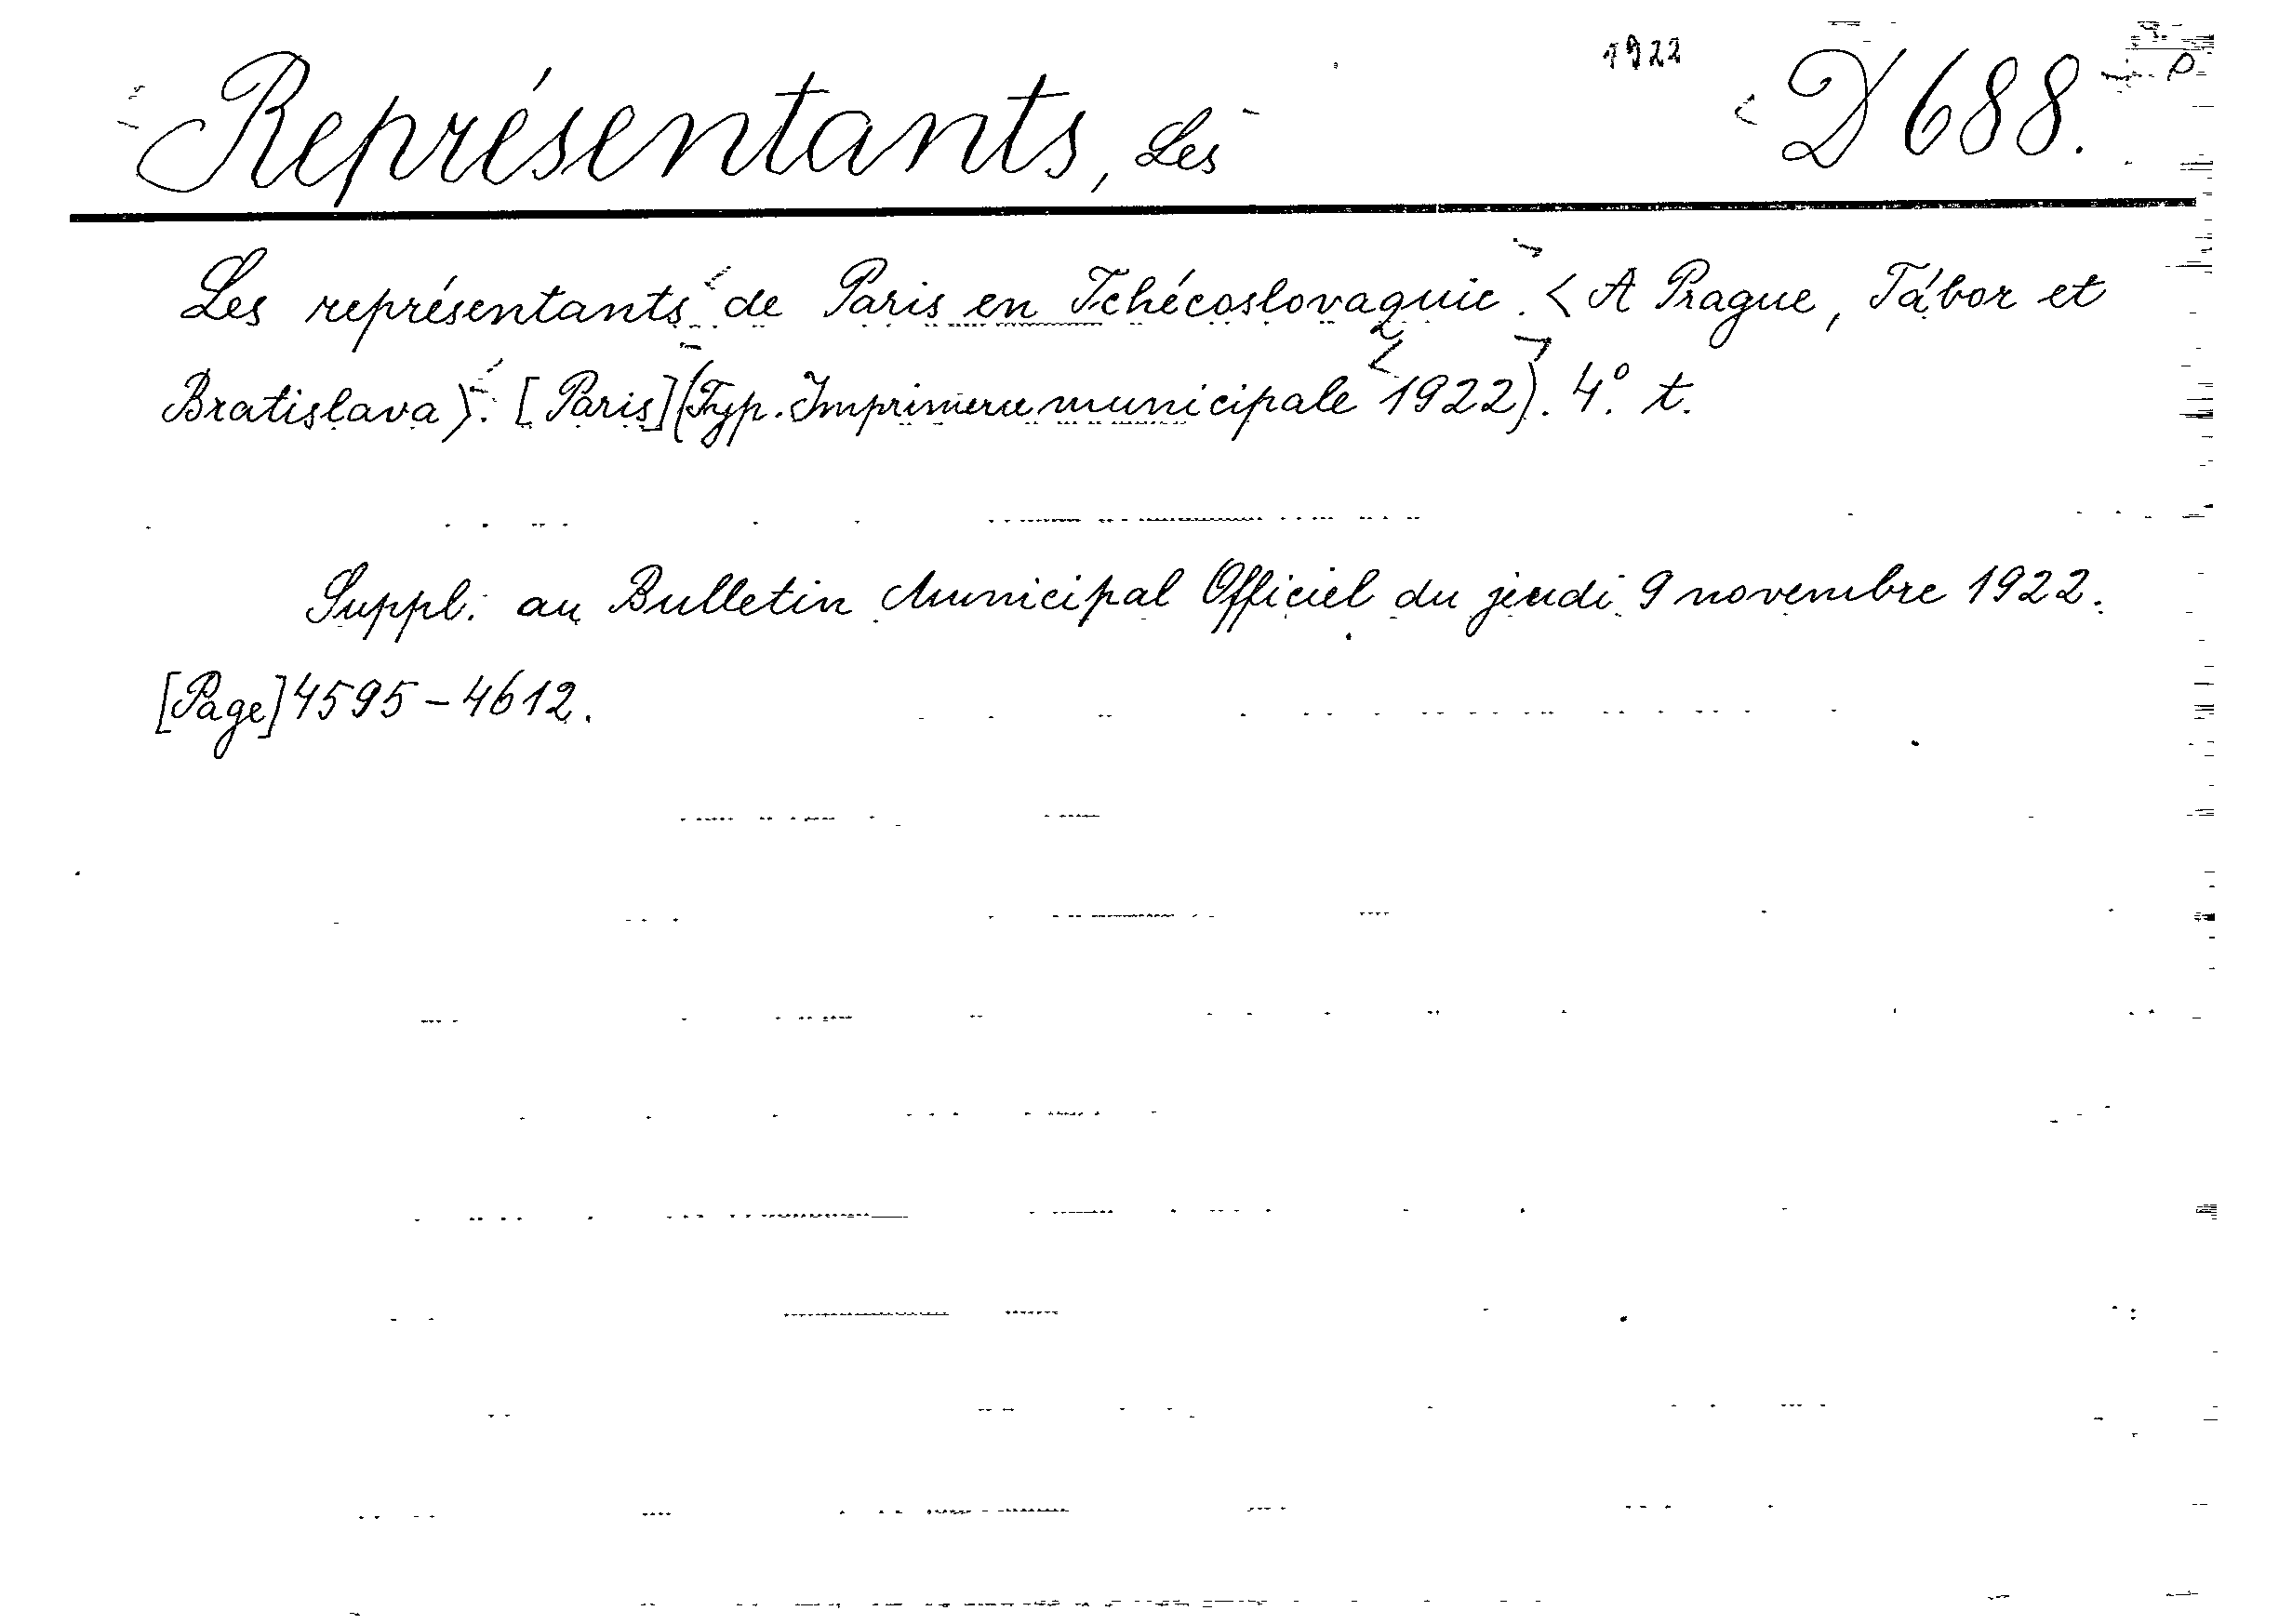 1922
Représentants, Les D 688.
Les représentants de Paris en Tchécoslovaquie. < A Prague, Tábor et
Bratislava >. [Paris] (Typ. Imprimerie municipale 1922). 4.° t.
Suppl. au Bulletin Municipal Officiel du jeudi 9 novembre 1922.
[Page] 4595 – 4612.